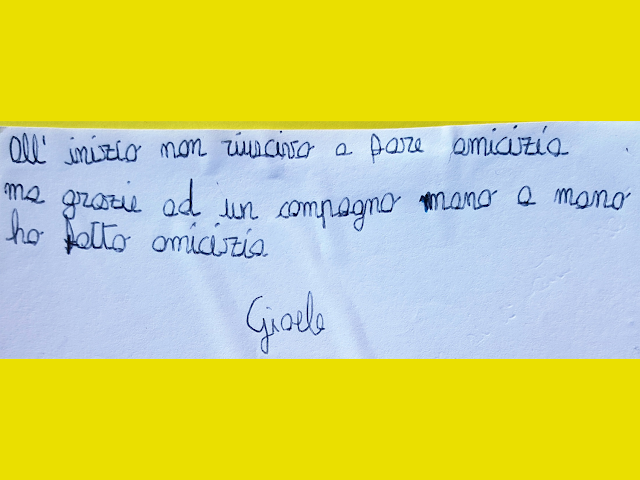 all' inizio non riuscivo a fare amicizia
ma grazie ad un compagno mano a mano
ho fatto amicizia
Gisele